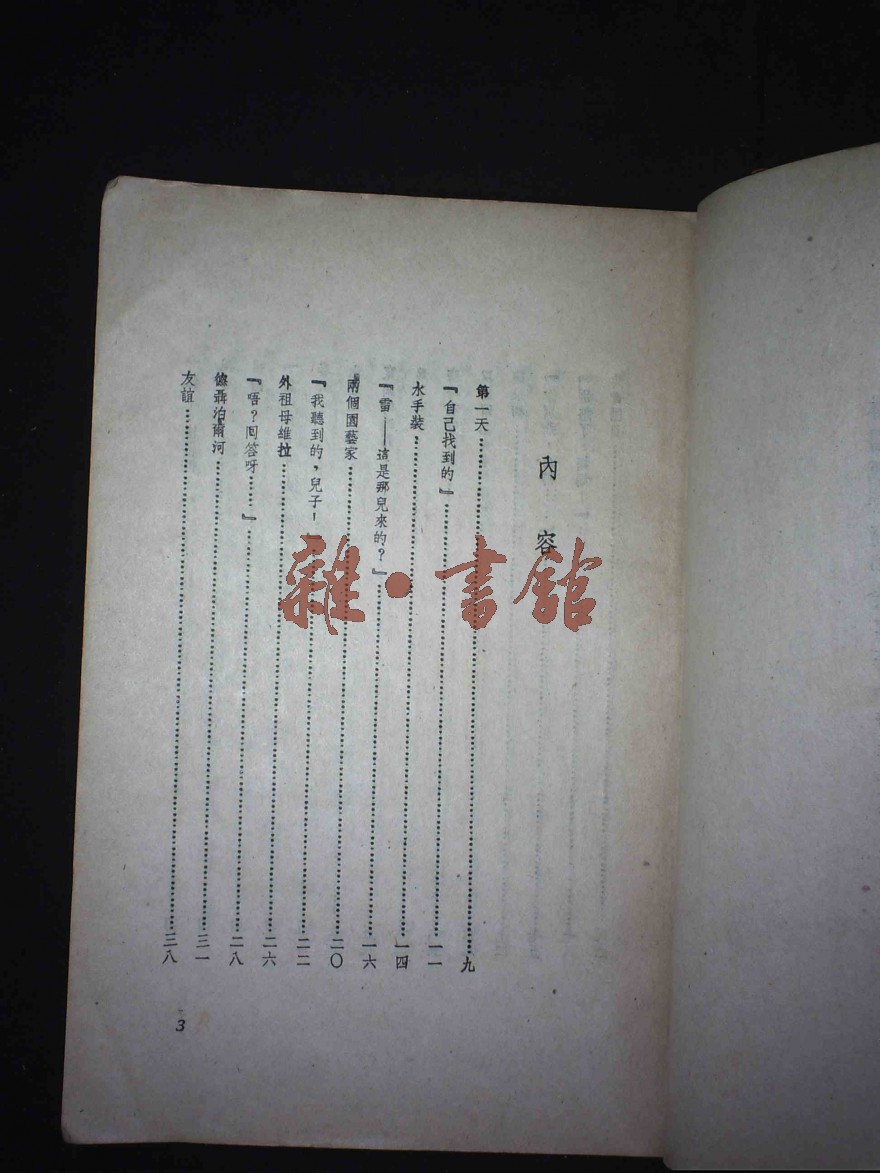 內容
第一天……九
『自己找到的』……一一
水手裝……一四
『雷——這是那兒來的？』……一六
兩個園藝家……二〇
『我聽到的，兒子！……二二
外祖母維拉……二六
『唔？囘答呀……』……二八
聶泊爾河……三一
友誼……三八
3
雜·書館